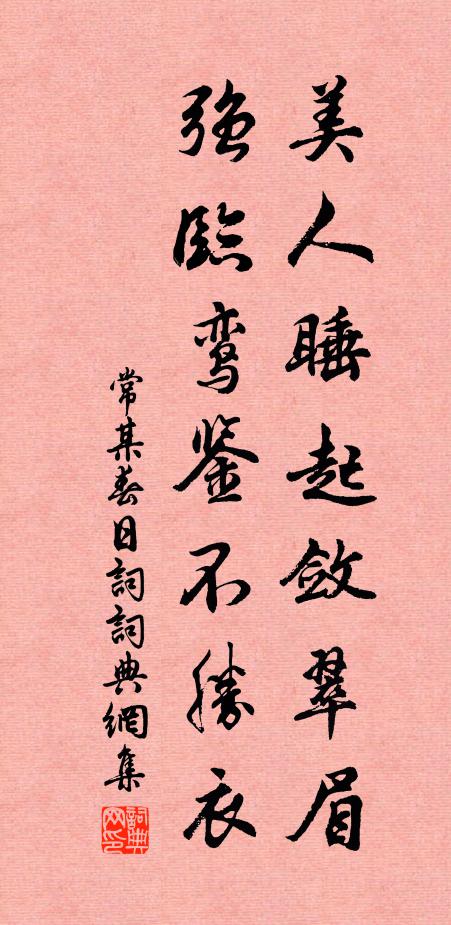 美人睡起敛翠眉
强臨鸾鉴不勝衣
常某春日詞詞典網集
詞典網印